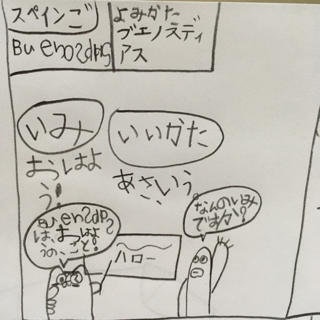 スペインご
Buenosdias
よみかた
ブエノスディ
アス
いみ
おはよ
う!
いいかた
あさいう。
Buenosdias
は、おはよ
うの、こと!
ハロー
なんのいみ
ですか?